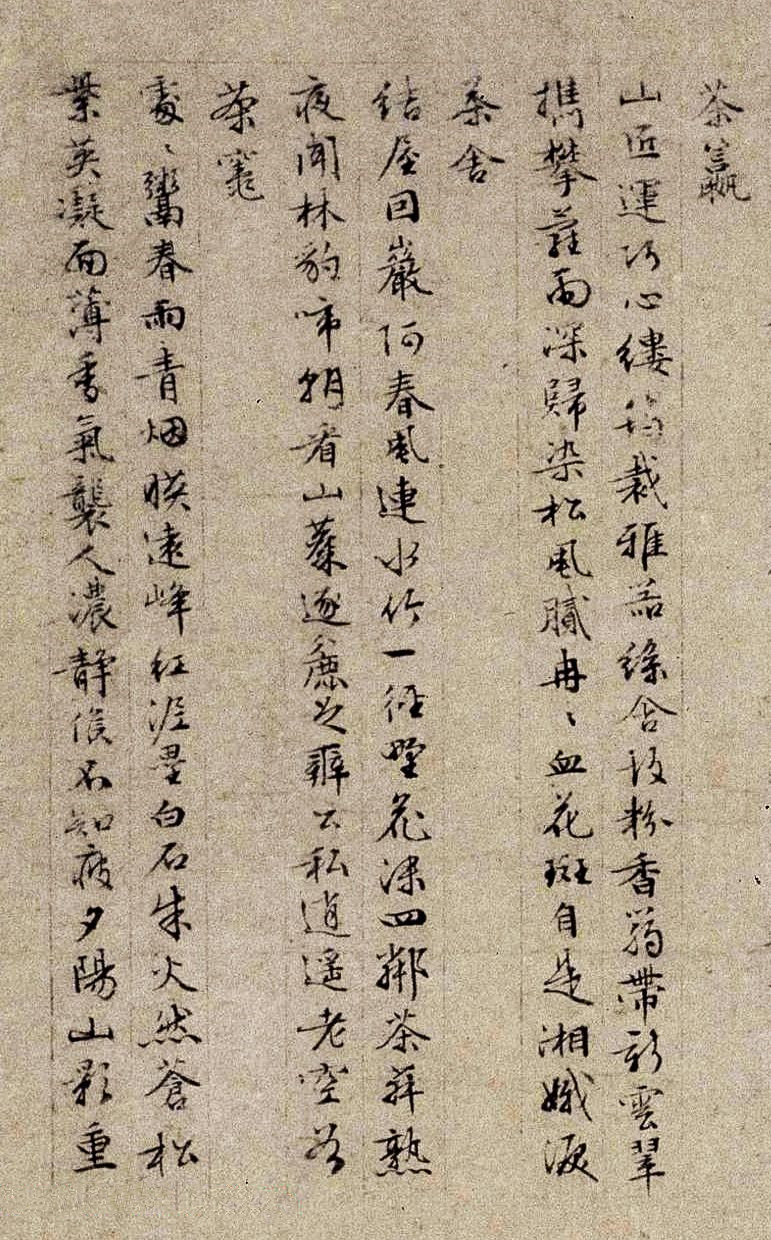 茶籯
山匠運巧心縷筠裁雅器綠含故粉香篛帶新雲翠
攜攀蘿雨深歸染松風膩冉〻血花斑自是湘娥淚
茶舍
結屋囙巖阿春風連水竹一徑野花深四鄰茶荈熟
夜聞林豹啼朝看山麋逐麄足辦公私逍遙老空谷
茶竈
處〻鬻春雨青烟暎遠峰紅泥壘白石朱火然蒼松
紫英凝面薄香氣襲人濃靜候不知疲夕陽山影重